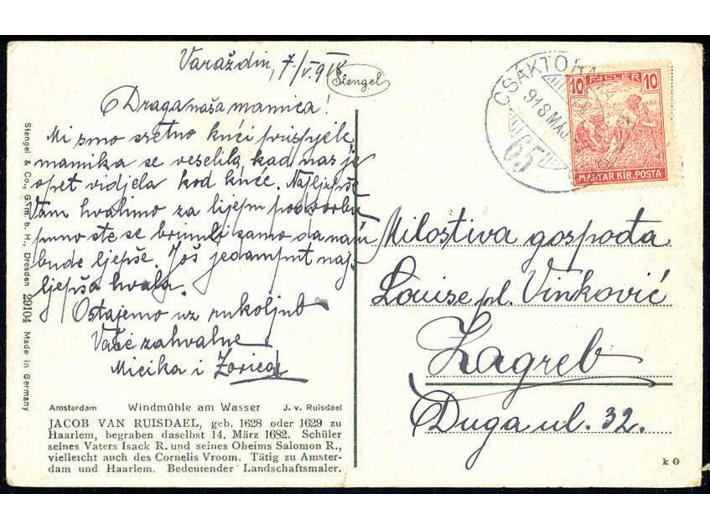 Varaždin, 7/V. 918
Stengel
Draga naša mamica!
Mi smo sretno kući prispjele
mamika se veselila kad nas je
opet vidjela kod kuće. Najljepše
Vam hvalimo za lijepu podvorbu
puno ste se brinuli samo da nam
bude ljepše. Još jedamput naj-
ljepša hvala.
Ostajemo uz rukoljub
Vaše zahvalne
Micika i Zorica
CSÁKTO
918 MAJ
65
10 FILLER 10
MAGYAR KIR. POSTA
Milostiva gospođa
Louise pl. Vinković
Zagreb
Duga ul. 32.
Stengel & Co., G. m. b. H., Dresden 29104 Made in Germany
Amsterdam Windmühle am Wasser J. v. Ruisdael
JACOB VAN RUISDAEL, geb. 1628 oder 1629 zu
Haarlem, begraben daselbst 14. März 1682. Schüler
seines Vaters Isack R. und seines Oheims Salomon R.,
vielleicht auch des Cornelis Vroom. Tätig zu Amster-
dam und Haarlem. Bedeutender Landschaftsmaler.
k G